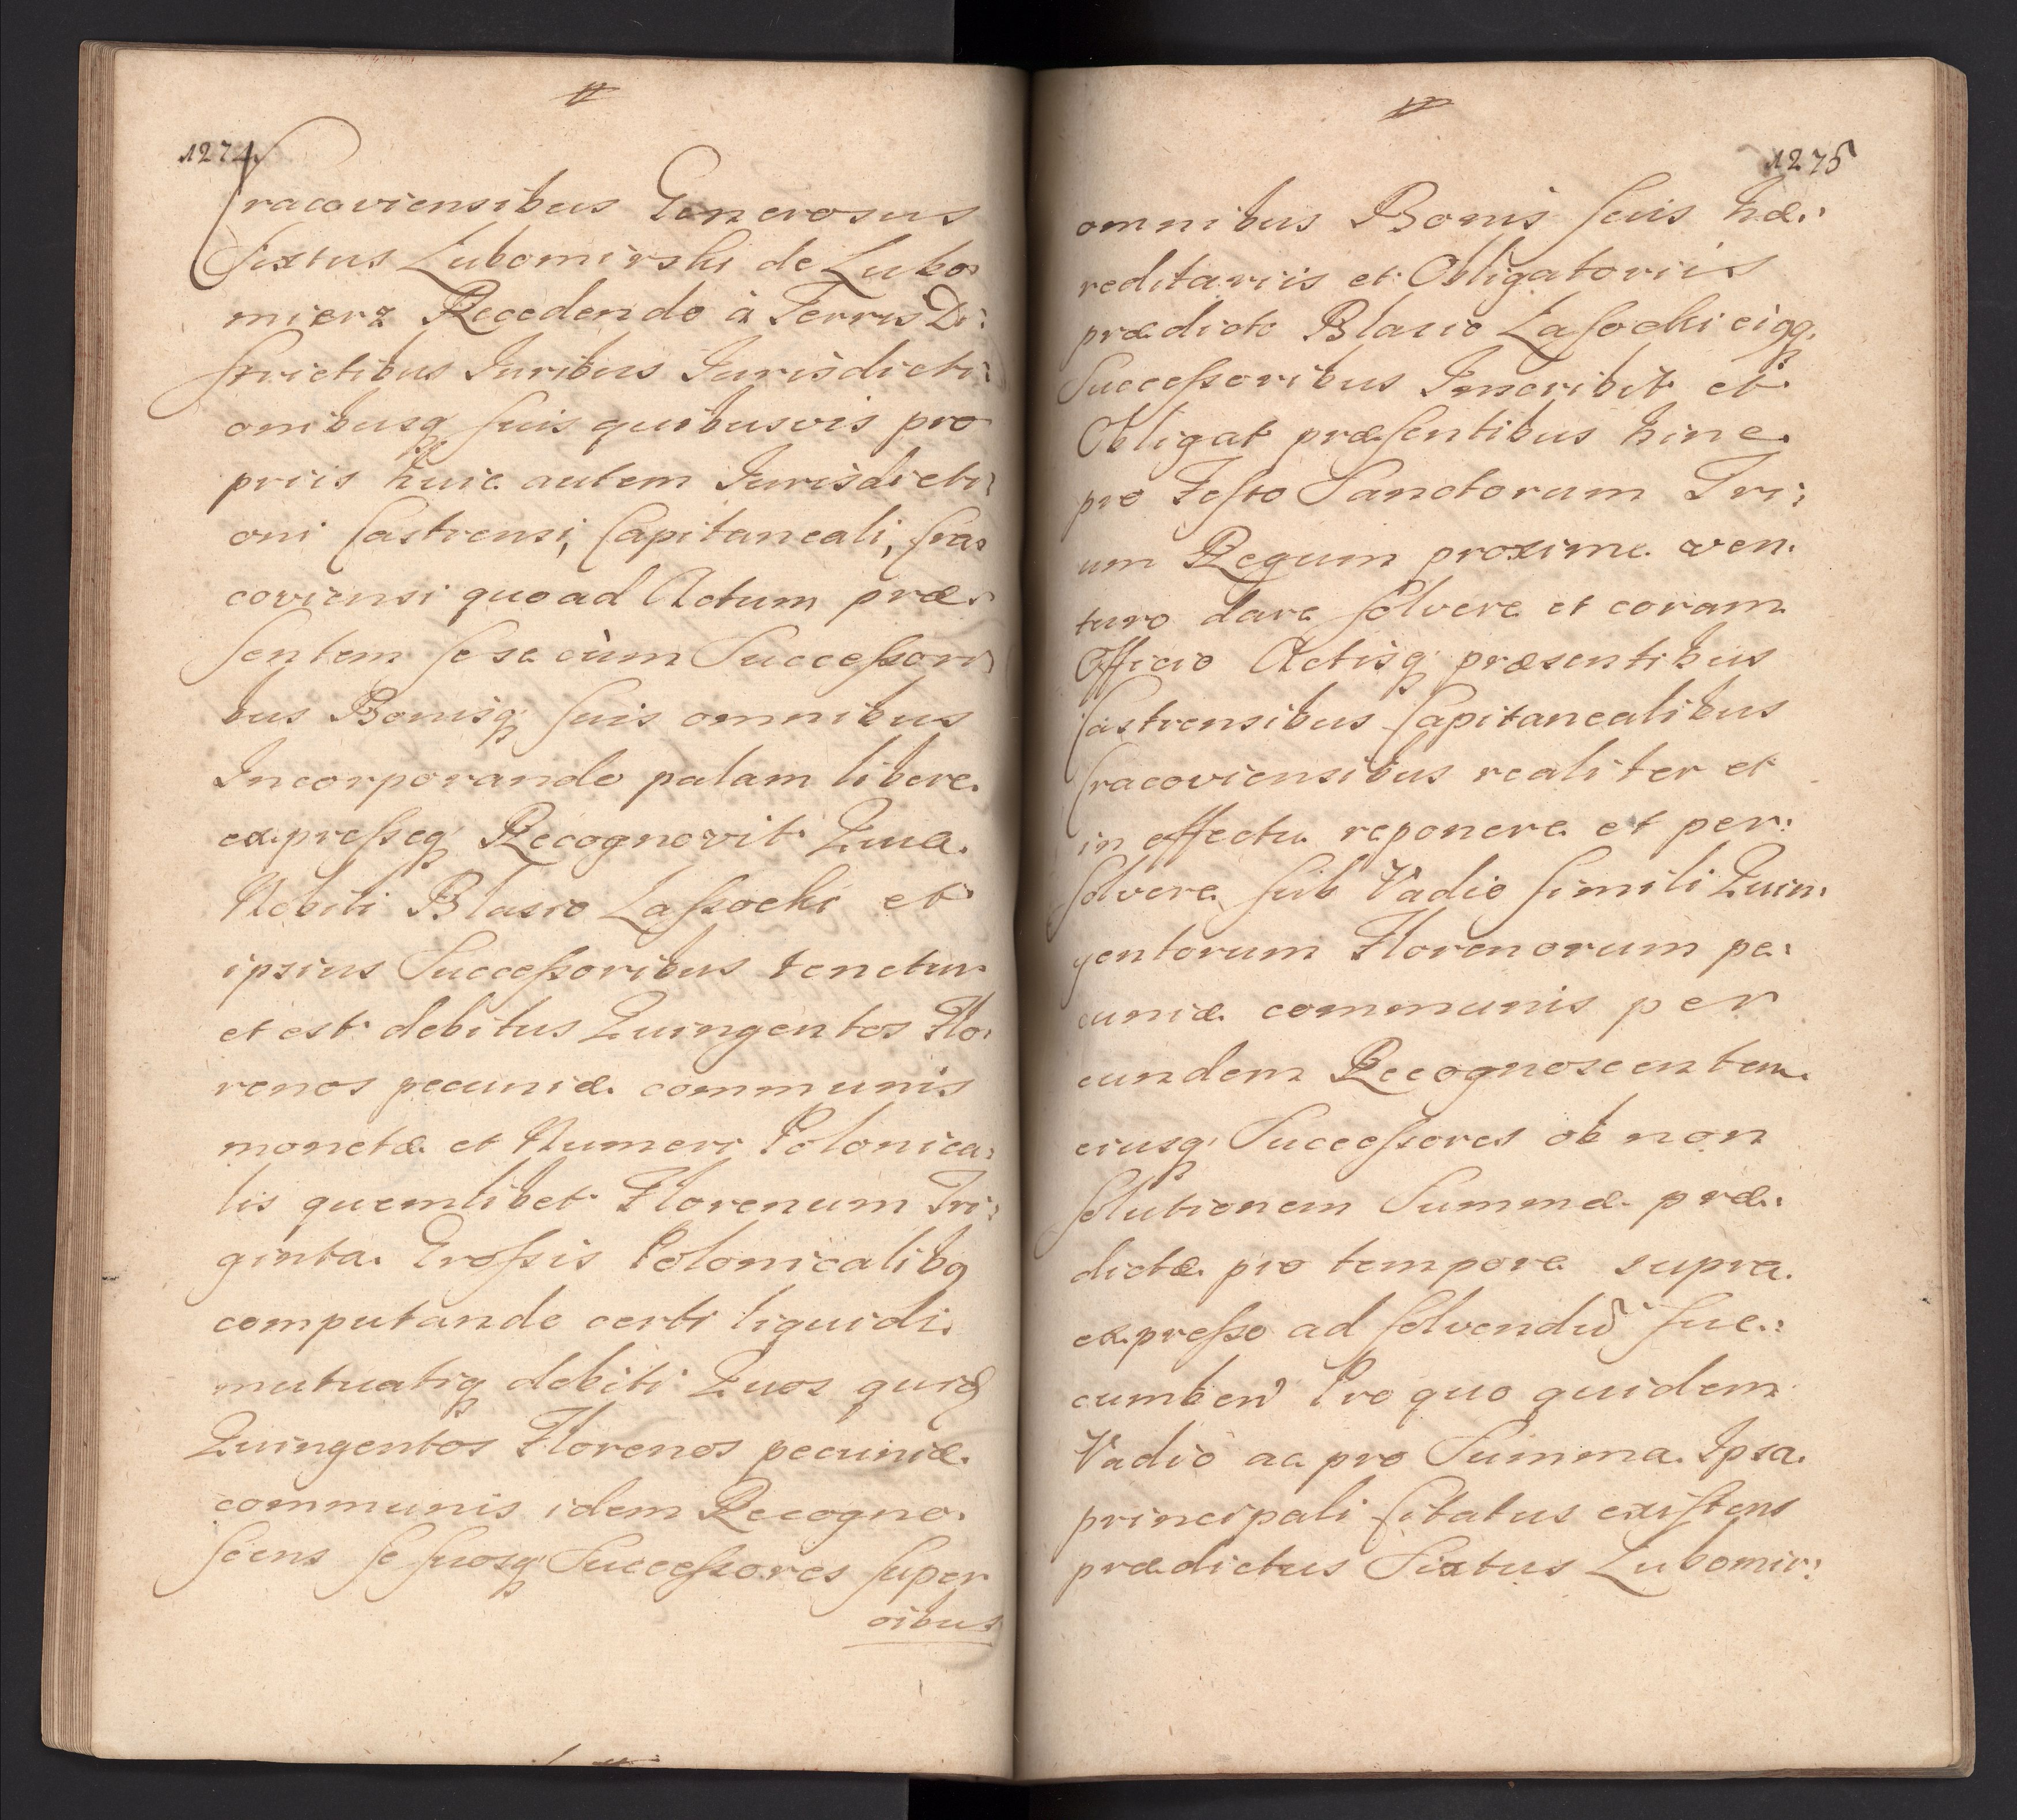 1274
Cracoviensibus Generosus
Sixtus Lubomirski de Lubo:
mierz Recedendo à Terris Di:
strictibus Iuribus Iurisdicti:
onibusq; suis quibusvis pro
priis huic autem Iurisdicti:
oni Castrensi, Capitaneali, Cra:
coviensi quoad Actum præ:
sentem sese cùm Successori
bus Bonisq; suis omnibus
Incorporando palam libere
expresseq; Recognovit Quia
Nobili Blasio Lassocki et
ipsius Successoribus tenetur
et est debitus Quingentos Flo:
renos pecuniæ communis
monetæ et Numeri Polonica:
lis quemlibet Florenum Tri:
ginta Grossis Polonicalibq
computando certi liquidi
mutuatiq; debiti Quos quid
Quingentos Florenos pecuniæ
communis idem Recogno:
scens se suosq; Successores super
oibus
1275
omnibus Bonis suis hæ:
reditariis et Obligatoriis
prædicto Blasio Lasocki eiqq;
Successoribus Inscribit et
Obligat præsentibus hinc
pro Festo Sanctorum Tri:
um Regum proxime ven:
turo dare solvere et coram
Officio Actisq; præsentibus
Castrensibus Capitanealibus
Cracoviensibus realiter et
in effectu reponere et per:
solvere sub Vadio simili Quin:
gentorum Florenorum pe:
cuniæ communis per
eundem Recognoscentem
eiusq; Successores ob non
solutionem Summæ præ:
dictæ pro tempore supra
expresso ad solvendũ suc:
cumben Pro quo quidem
Vadio ac pro Summa Ipsa
principali Citatus existens
prædictus Sixtus Lubomir: